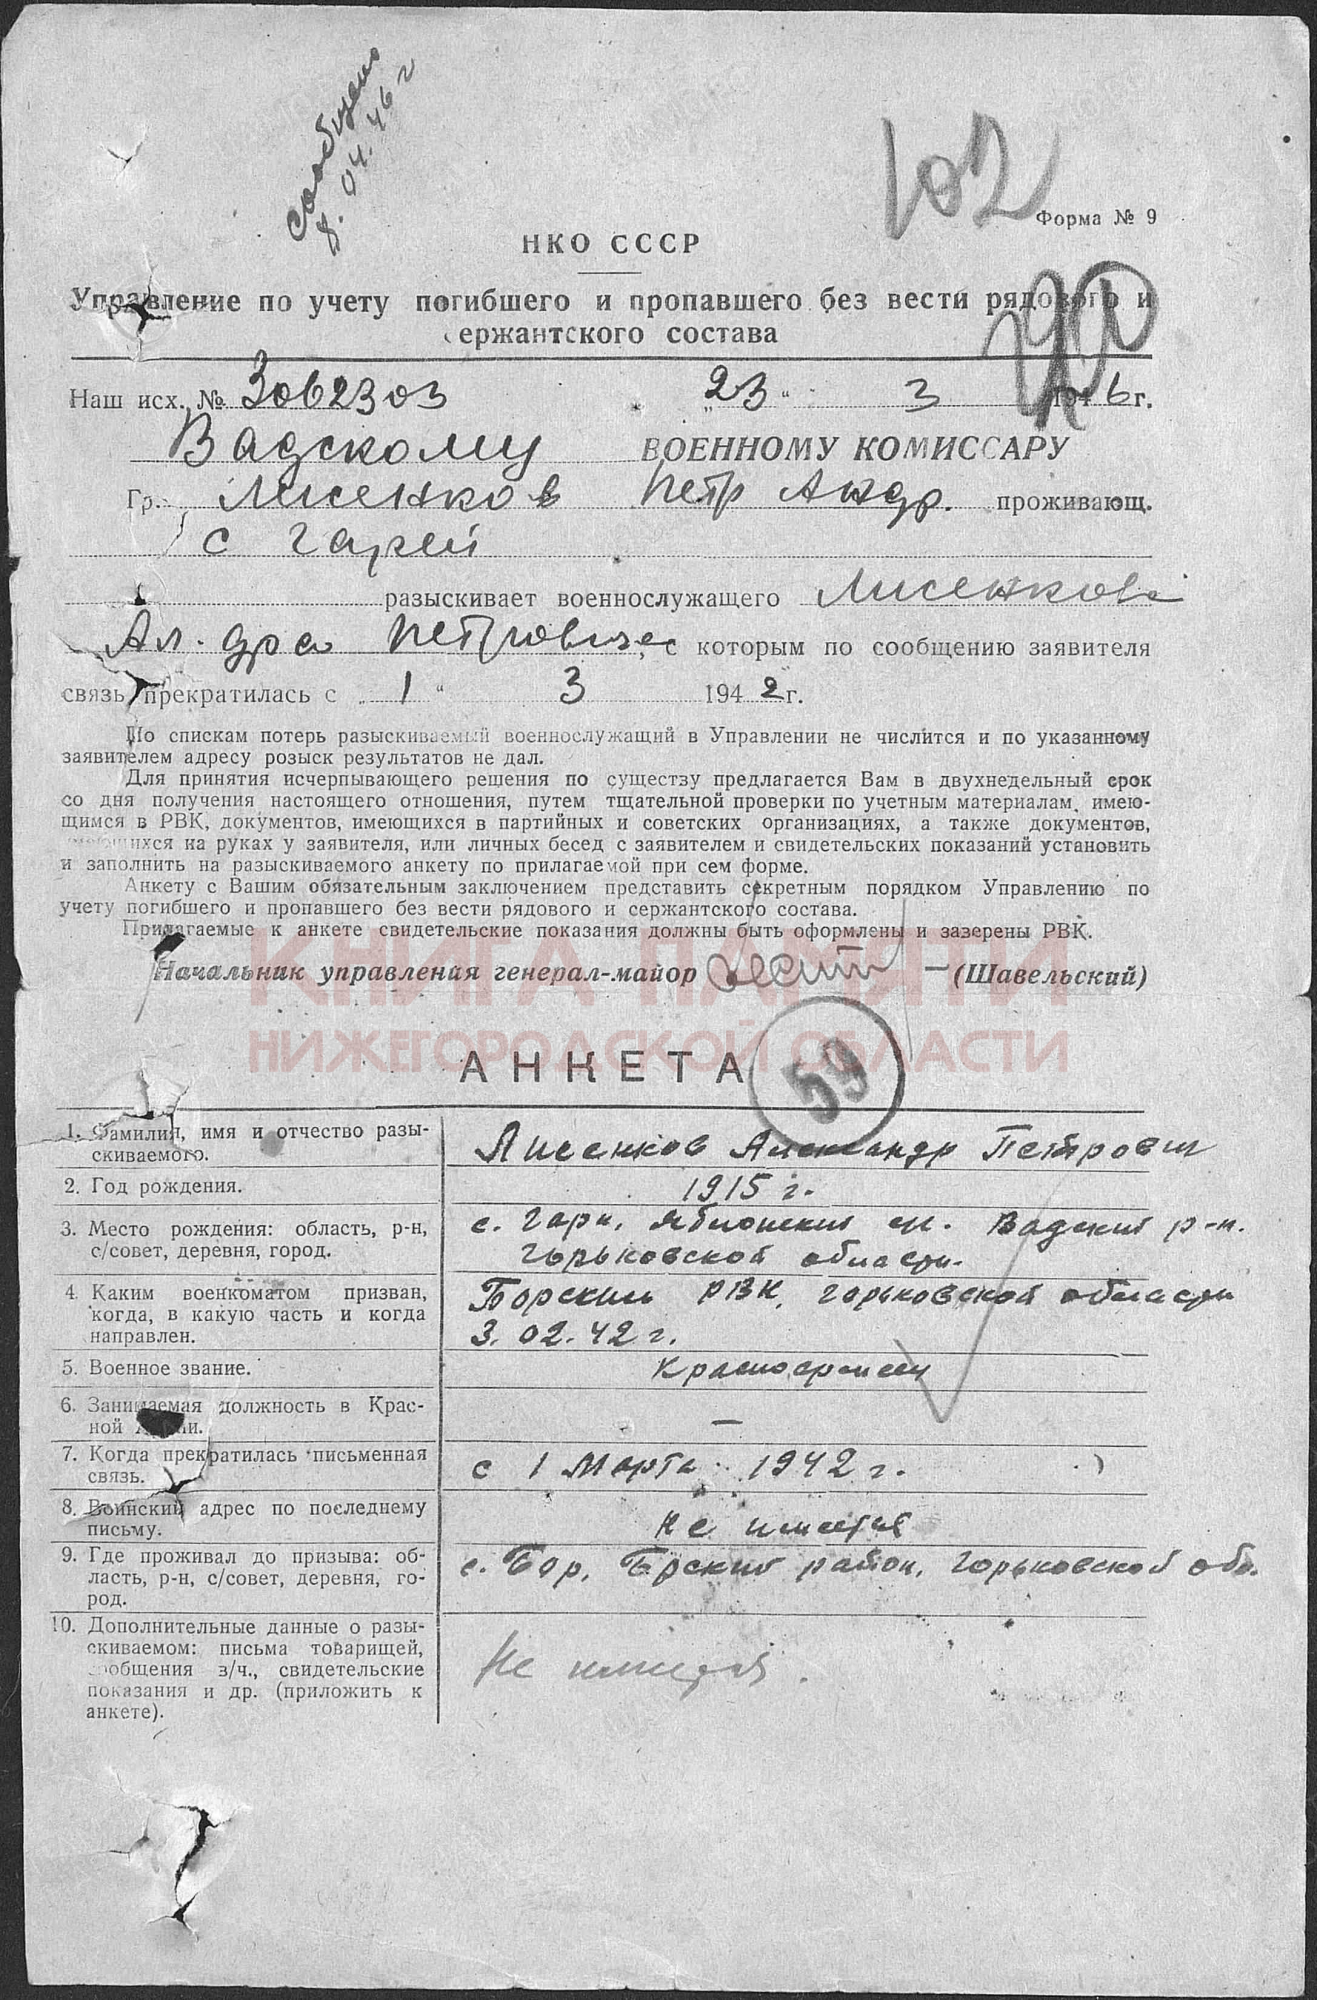 сообщено
8. 04. 46 г
102
Форма № 9
НКО СССР
Управление по учету погибшего и пропавшего без вести рядового и
сержантского состава
Наш исх. № 3062303 „23“ 3 1946г.
Вадскому ВОЕННОМУ КОМИССАРУ
Гр. Лисенков Петр Андр. проживающ.
с Гарей
разыскивает военнослужащего Лисенкова
Ал-дра Петровича, с которым по сообщению заявителя
связь прекратилась с „1“ 3 1942г.
По спискам потерь разыскиваемый военнослужащий в Управлении не числится и по указанному
заявителем адресу розыск результатов не дал.
Для принятия исчерпывающего решения по существу предлагается Вам в двухнедельный срок
со дня получения настоящего отношения, путем тщательной проверки по учетным материалам, имею-
щимся в РВК, документов, имеющихся в партийных и советских организациях, а также документов,
имеющихся на руках у заявителя, или личных бесед с заявителем и свидетельских показаний установить
и заполнить на разыскиваемого анкету по прилагаемой при сем форме.
Анкету с Вашим обязательным заключением представить секретным порядком Управлению по
учету погибшего и пропавшего без вести рядового и сержантского состава.
Прилагаемые к анкете свидетельские показания должны быть оформлены и заверены РВК.
КНИГА ПАМЯТИ
Начальник управления генерал-майор (Шавельский)
НИЖЕГОРОДСКОЙ ОБЛАСТИ
АНКЕТА 59
1. Фамилия, имя и отчество разы-
скиваемого.
Лисенков Александр Петрович
2. Год рождения.
1915 г.
3. Место рождения: область, р-н,
с/совет, деревня, город.
с. Гари, Яблонский с/с. Вадский р-н.
Горьковской области.
4. Каким военкоматом призван,
когда, в какую часть и когда
направлен.
Борским РВК, Горьковской области
3. 02. 42 г.
5. Военное звание.
Красноармеец
6. Занимаемая должность в Крас-
ной Армии.
—
7. Когда прекратилась письменная
связь.
с 1 Марта 1942 г.
8. Воинский адрес по последнему
письму.
Не имеется
9. Где проживал до призыва: об-
ласть, р-н, с/совет, деревня, го-
род.
с. Бор, Брский район, Горьковской обл.
10. Дополнительные данные о разы-
скиваемом: письма товарищей,
сообщения з/ч., свидетельские
показания и др. (приложить к
анкете).
Не имеется.